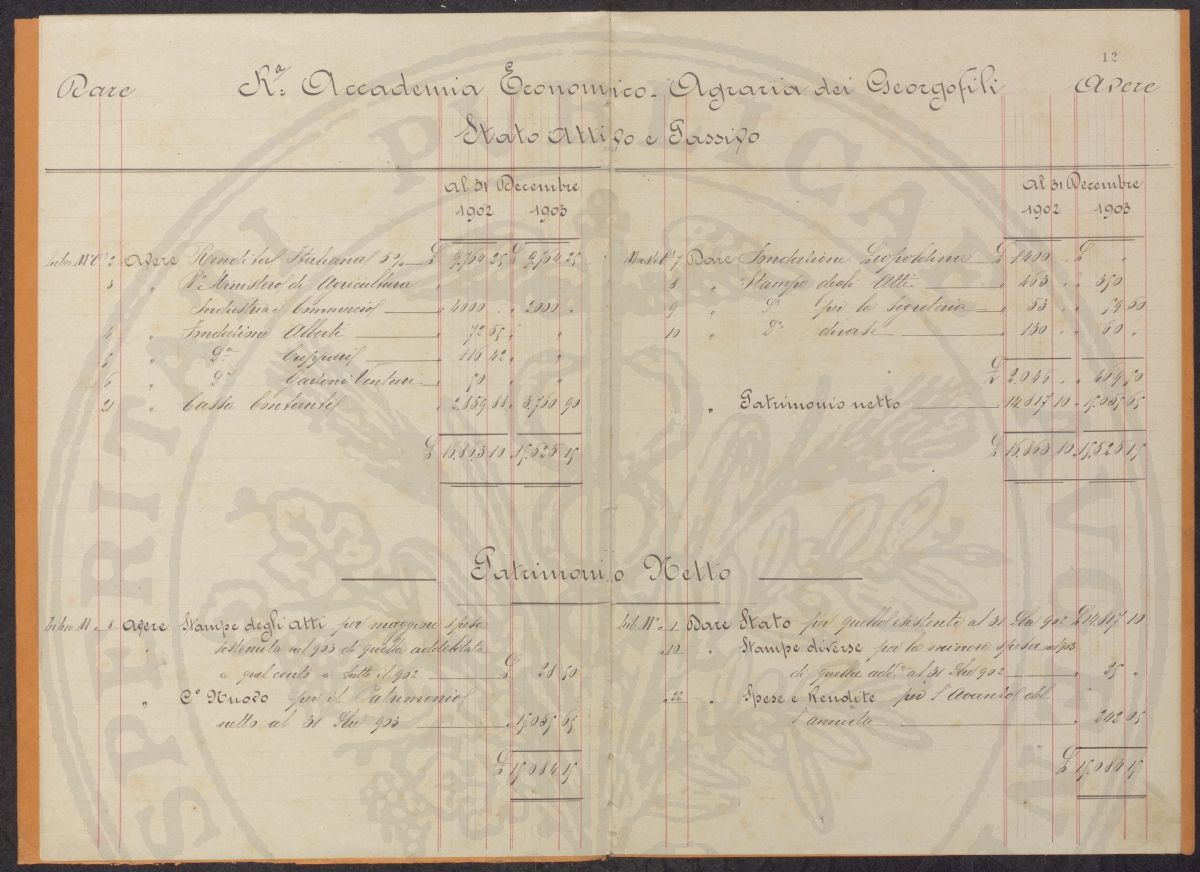 12
Dare R.ª Accademia Economico-Agraria dei Georgofili Avere
Stato Attivo e Passivo
al 31 Decembre
1902 1903
Libro M° C.ⁱ 2 Avere Rendita Italiana 5% £ 9,764 25 £ 9,764 25
3 " R° Ministero di Agricoltura
Industria e Commercio 4000 " 2000 "
4 " Fondazione Alberti 72 55 " "
5 " D.ª Cuppari 116 42 " "
6 " D.ª Carloni Venturi 50 " " "
21 " Cassa Contanti 2.859 88 3.760 90
£ 16,863 10 15,525 15
Al 31 Decembre
1902 1903
Mastº Cⁱ 7 Dare Fondazione Leopoldina £ 1400 " £ "
8 " Stampe degli Atti 463 " 350 "
9 " D.ª per la Segreteria 53 " 79 50
10 " D.ª diverse 130 " 60 "
£ 2.046 " 489 50
" Patrimonio netto 14.817 10 15.035 65
£ 16.863 10 15,525 15
Patrimonio Netto
Libro M° 8 Avere Stampe degli Atti per maggiore spesa
" sostenuta nel 903 di quella addebitata
a quel conto a tutto il 902 £ 48 50
" C° Nuovo per il Patrimonio
netto al 31 Xbre 903 15.035 65
£ 15,084 15
Lib. M° 1 Dare Stato per quello esistente al 31 Xbre 902 £ 14,817 10
" 10 " Stampe diverse per la minore spesa nel 903
di quella add.ª al 31 Xbre 902 " 25 "
" 22 " Spese e Rendite per l'Avanzo del
l'annata " 242 05
£ 15,084 15